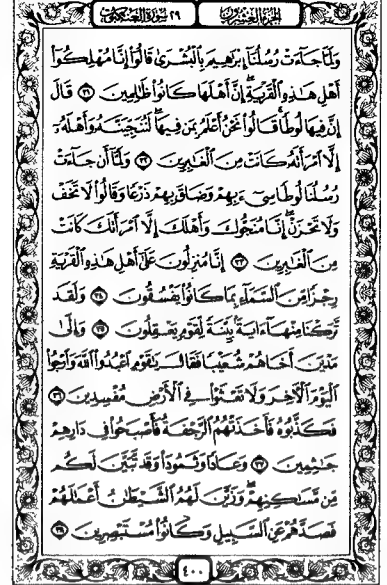 الجزء العشرون ٢٩ سورة العنكبوت
وَلَمَّا جَآءَتْ رُسُلُنَآ إِبْرَٰهِيمَ بِٱلْبُشْرَىٰ قَالُوٓا۟ إِنَّا مُهْلِكُوٓا۟
أَهْلِ هَـٰذِهِ ٱلْقَرْيَةِ ۖ إِنَّ أَهْلَهَا كَانُوا۟ ظَـٰلِمِينَ ٣١ قَالَ
إِنَّ فِيهَا لُوطًا ۚ قَالُوا۟ نَحْنُ أَعْلَمُ بِمَن فِيهَا ۖ لَنُنَجِّيَنَّهُۥ وَأَهْلَهُۥٓ
إِلَّا ٱمْرَأَتَهُۥ كَانَتْ مِنَ ٱلْغَـٰبِرِينَ ٣٢ وَلَمَّآ أَن جَآءَتْ
رُسُلُنَا لُوطًا سِىٓءَ بِهِمْ وَضَاقَ بِهِمْ ذَرْعًا وَقَالُوا۟ لَا تَخَفْ
وَلَا تَحْزَنْ ۖ إِنَّا مُنَجُّوكَ وَأَهْلَكَ إِلَّا ٱمْرَأَتَكَ كَانَتْ
مِنَ ٱلْغَـٰبِرِينَ ٣٣ إِنَّا مُنزِلُونَ عَلَىٰٓ أَهْلِ هَـٰذِهِ ٱلْقَرْيَةِ
رِجْزًا مِّنَ ٱلسَّمَآءِ بِمَا كَانُوا۟ يَفْسُقُونَ ٣٤ وَلَقَد
تَّرَكْنَا مِنْهَآ ءَايَةًۢ بَيِّنَةً لِّقَوْمٍ يَعْقِلُونَ ٣٥ وَإِلَىٰ
مَدْيَنَ أَخَاهُمْ شُعَيْبًا فَقَالَ يَـٰقَوْمِ ٱعْبُدُوا۟ ٱللَّهَ وَٱرْجُوا۟
ٱلْيَوْمَ ٱلْـَٔاخِرَ وَلَا تَعْثَوْا۟ فِى ٱلْأَرْضِ مُفْسِدِينَ ٣٦
فَكَذَّبُوهُ فَأَخَذَتْهُمُ ٱلرَّجْفَةُ فَأَصْبَحُوا۟ فِى دَارِهِمْ
جَـٰثِمِينَ ٣٧ وَعَادًا وَثَمُودَا۟ وَقَد تَّبَيَّنَ لَكُم
مِّن مَّسَـٰكِنِهِمْ ۖ وَزَيَّنَ لَهُمُ ٱلشَّيْطَـٰنُ أَعْمَـٰلَهُمْ
فَصَدَّهُمْ عَنِ ٱلسَّبِيلِ وَكَانُوا۟ مُسْتَبْصِرِينَ ٣٨
٤٠٠